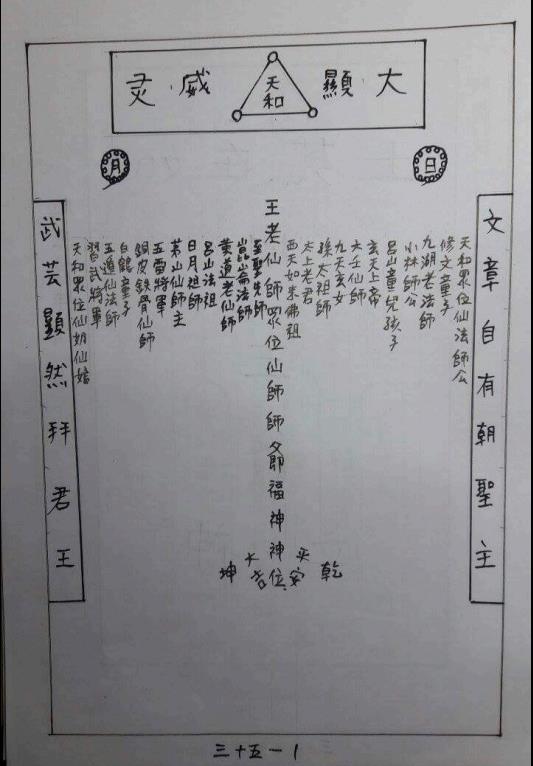 大顯 天和 威灵
日
月
文章自有朝聖主
天和眾位仙法師公
修文童子
九湖老法師
小林師公
呂山童兒孩子
玄天上帝
六壬仙師
九天玄女
孫太祖師
太上老君
西天如来佛祖
王老仙師眾位仙師師爺福神神位
至聖先師
崑崙法師
黃道老仙師
呂山法祖
日月祖師
茅山仙師主
五雷將軍
銅皮鉄骨仙師
白鶴童子
五遁仙法師
習武將軍
天和眾位仙娘仙姑
武芸顯然拜君王
乾
平安
大吉
坤
三十五-1